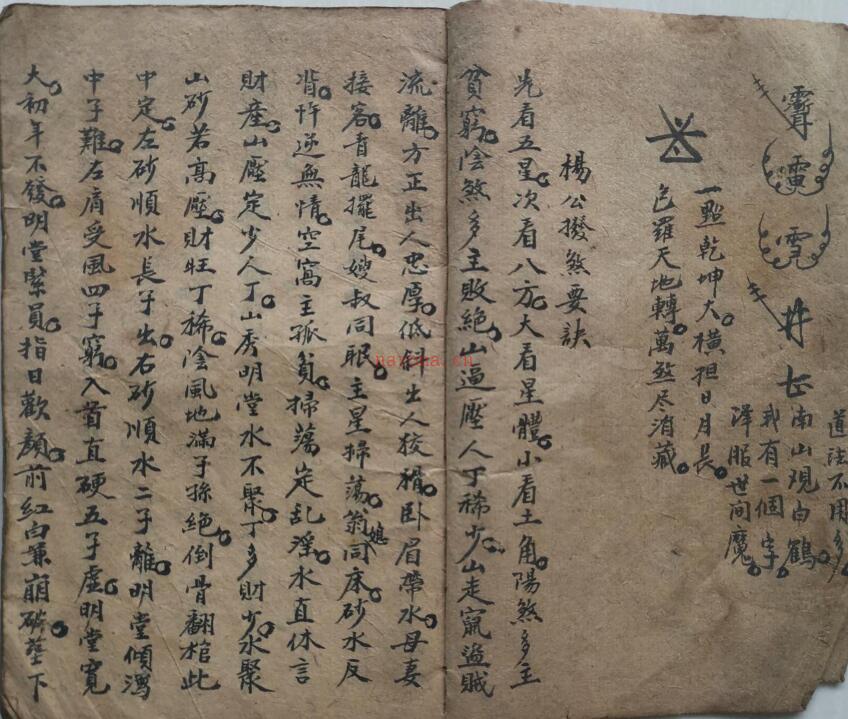 道法不用多
南山观白鶴
我有一個字
泽服世间魔
一點乾坤大。橫担日月長。
包羅天地轉。萬煞尽消藏。
楊公撥煞要訣
先看五星。次看八方。大看星體。小看土角。陽煞多主
貧窮。陰煞多主敗絕。山逼壓人丁稀少。山走竄盜賊
流離。方正出人忠厚。低斜出人狡猾。卧眉帶水。母妻
接客。青龍擺尾。嫂叔同眠。主星掃蕩。翁媳同床。砂水反
背。忤逆無情。空窩主孤貧。掃蕩定乱淫。水直休言
財産。山壓定少人丁。山秀明堂水不聚。丁多財少。水聚
山砂若高壓。財旺丁稀。陰風地滿子孫絕。倒骨翻棺此
中定。左砂順水長子出。右砂順水二子離。明堂傾瀉
中子難。左肩受風四子窮。入首直硬五子虛。明堂寬
大。初年不發。明堂緊員。指日歡顏。前紅白兼崩破。葬下